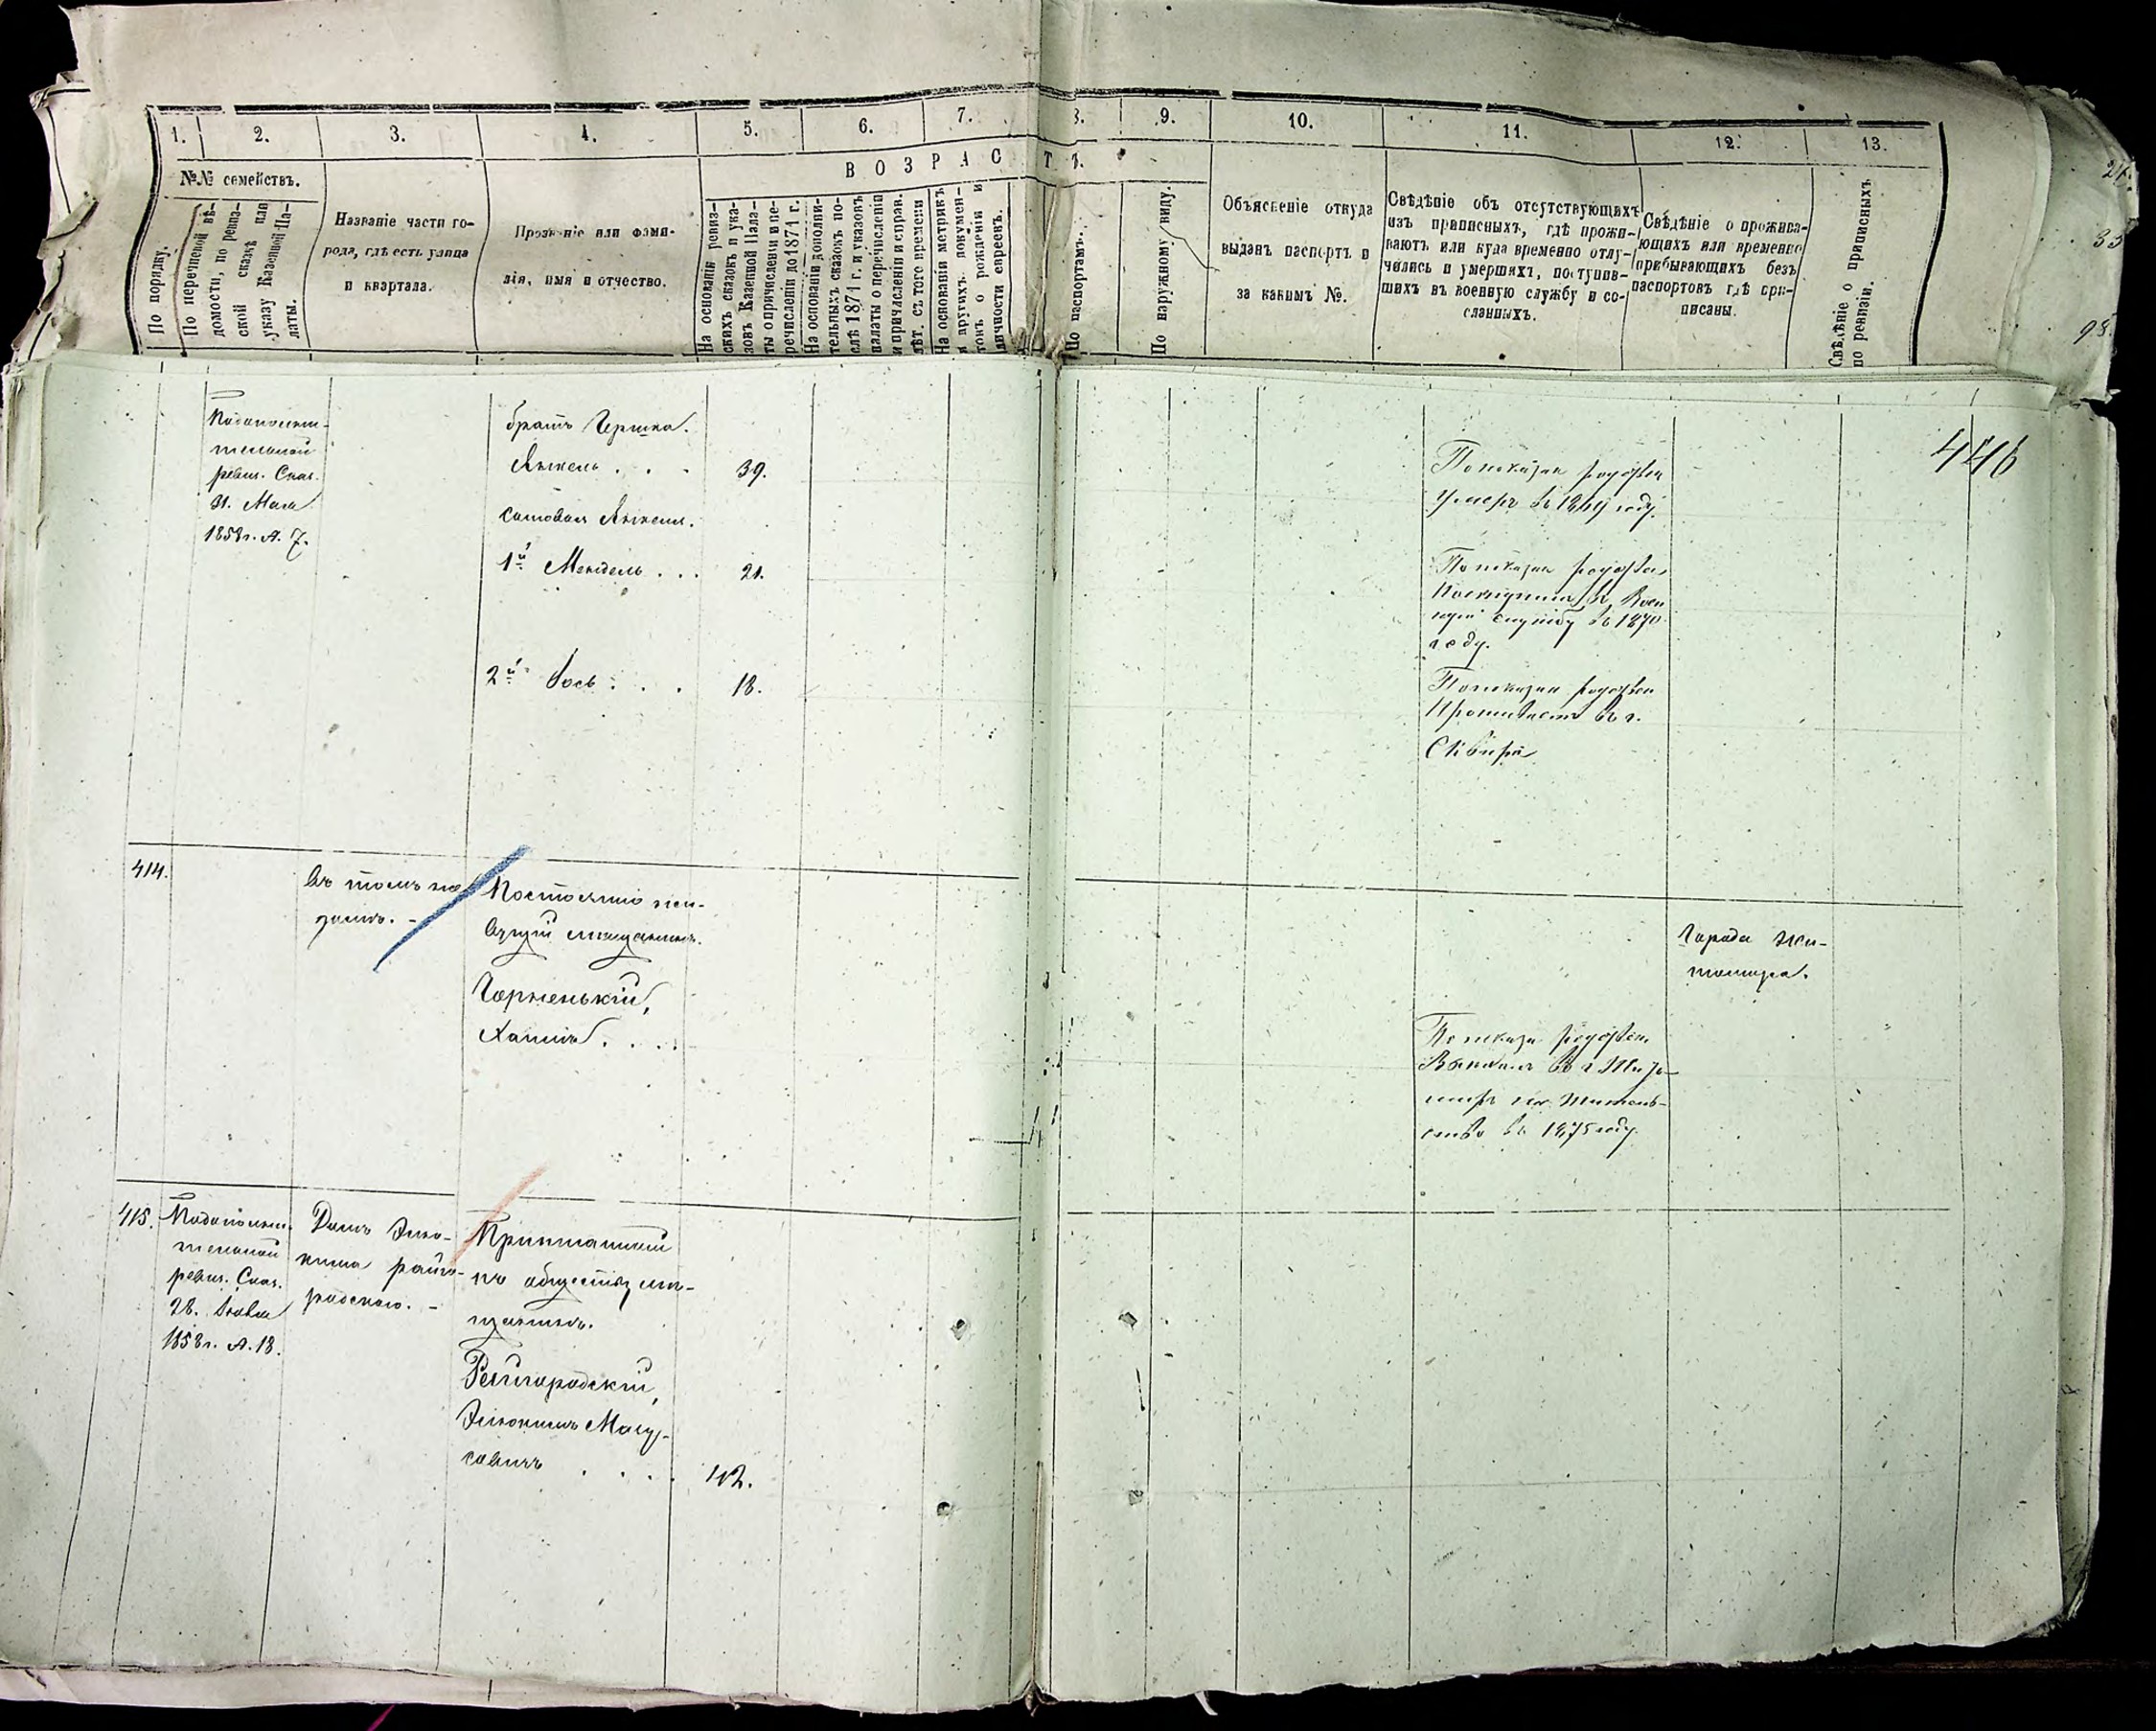 1.
2.
3.
4.
5.
6.
7.
8.
9.
10.
11.
12.
13.
№№ семействъ.
ВОЗРАСТЪ.
По порядку.
По перечневой вѣ-
домости, по ревиз-
ской сказкѣ или
указу Казенной Па-
латы.
Названіе части го-
рода, гдѣ есть улица
и квартала.
Прозваніе или фами-
лія, имя и отчество.
На основаніи ревиз-
скихъ сказокъ и ука-
зовъ Казенной Пала-
ты о причисленіи и пе-
речисленіи до 1874 г.
На основаніи дополни-
тельныхъ сказокъ по-
слѣ 1874 г. и указовъ
палаты о перечисленіи
и причисленіи и справ.
лѣт. съ того времени
На основаніи метрикъ
и другихъ докумен-
товъ о рожденіи и
личности евреевъ.
По паспортамъ.
По наружному виду.
Объясненіе откуда
выданъ паспортъ и
за какимъ №.
Свѣдѣніе объ отсутствующихъ
изъ приписныхъ, гдѣ прожи-
ваютъ или куда временно отлу-
чились и умершихъ, поступив-
шихъ въ военную службу и со-
сланныхъ.
Свѣдѣніе о прожива-
ющихъ или временно
прибывающихъ безъ
паспортовъ гдѣ при-
писаны.
Свѣдѣніе о приписныхъ
по ревизіи.
446
Подополни-
тельной
ревиз. Сказ.
31. Мая
1858 г. №. 7.
братъ Гершка.
Янкель . . . 39.
По показан родствен
умеръ въ 1869 году.
сыновья Янкеля.
1й Мендель . . . 21.
По показан родствен
Поступилъ въ Воен
ную службу въ 1870
году.
2й Іось . . . 18.
По показан родствен
Проживаетъ въ г.
Сквирѣ
414.
въ томъ же
домѣ. -
Постоянно жи-
вущій мѣщанинъ.
Чорненькій,
Хаимъ . . . .
Города Жи-
томира.
По показа родствен
Выехалъ въ г Жито-
миръ на Житель-
ство въ 1875 году.
415.
Подополни-
тельной
ревиз. Сказ.
28. Іюня
1858 г. №. 18.
Домъ Эльо-
кима райго-
родскаго. -
Приписанный
къ обществу мѣ-
щанинъ.
Рейгородскій,
Эльокимъ Мошу-
совичъ . . . . 42.